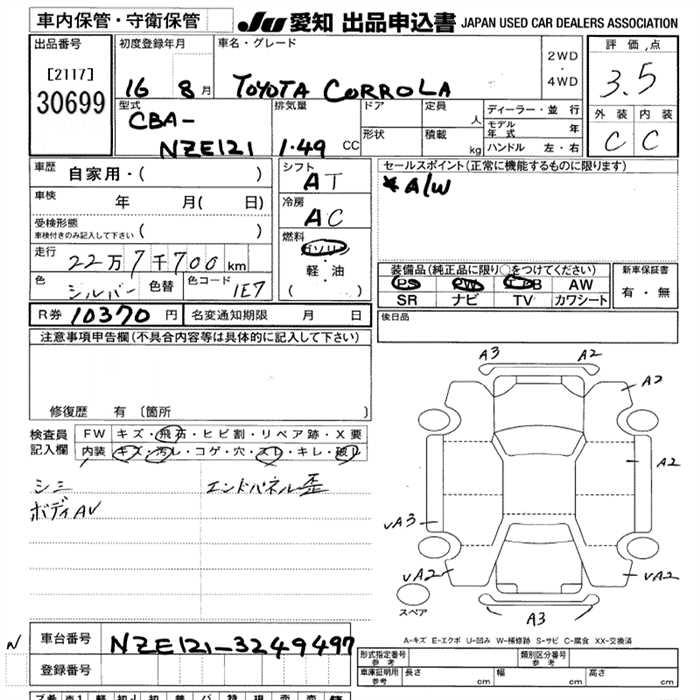 車内保管・守衛保管 JU 愛知 出品申込書 JAPAN USED CAR DEALERS ASSOCIATION
出品番号 初度登録年月 車名・グレード 評価点
[2117] 2WD
30699 16 8月 TOYOTA CORROLA ・ 3.5
4WD
型式 排気量 ドア 定員 人 ディーラー・並行 外装 内装
CBA- モデル年式 年 C C
NZE121 1.49 CC 形状 積載 kg ハンドル 左・右
車歴 自家用・( ) シフト AT セールスポイント(正常に機能するものに限ります)
車検 年 月( 日) 冷房 AC *A/W
受検形態 ( )
車検付きのみ記入して下さい
燃料 ガソリン
走行 22万7千700km ・
軽・油
色 シルバー 色替 色コード 1E7 ( )
装備品(純正品に限り○をつけてください) 新車保証書
PS PW エアB AW 有・無
SR ナビ TV カワシート
R券 10370円 名変通知期限 月 日 後日品
注意事項申告欄(不具合内容等は具体的に記入して下さい)
修復歴 有〔箇所 〕
検査員 FW キズ・飛石・ヒビ割・リペア跡・X要
記入欄 内装 キズ・汚レ・コゲ・穴・スレ・キレ・破レ
シミ エンドパネル歪
ボディAV
A3 A2
A2
A2
VA3
VA2 VA2
スペア A3
A-キズ E-エクボ U-凹み W-補修跡 S-サビ C-腐食 XX-交換済
N 車台番号 NZE121-3249497
登録番号
形式指定番号 参考 類別区分番号 参考
車庫証明用 参考 長さ cm 幅 cm 高さ cm